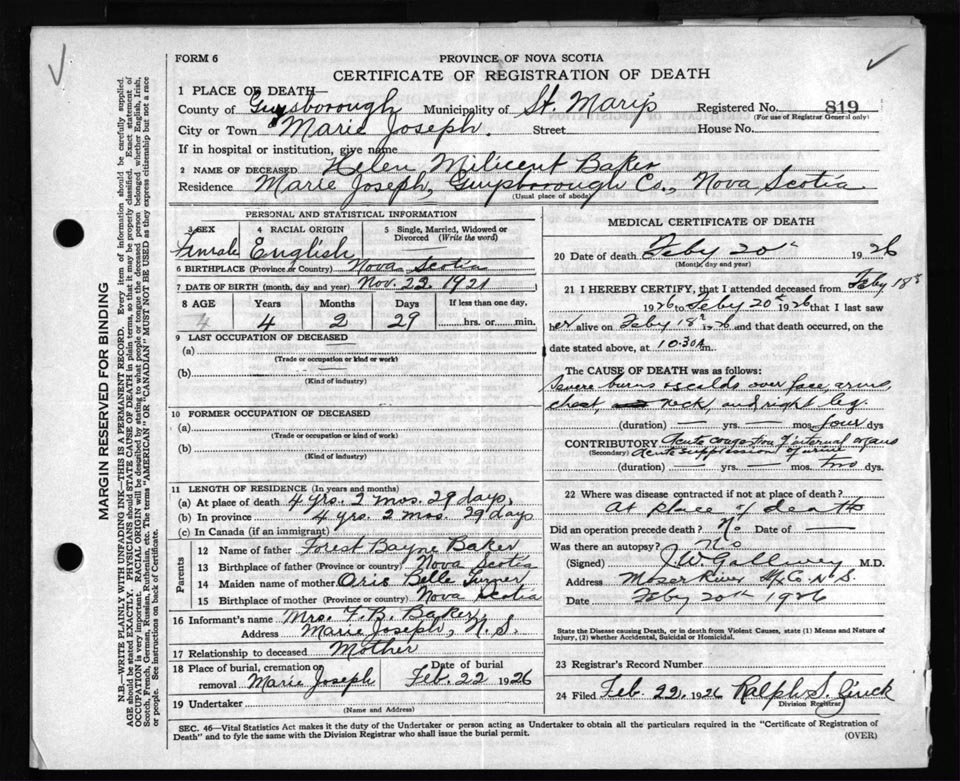 FORM 6
PROVINCE OF NOVA SCOTIA
CERTIFICATE OF REGISTRATION OF DEATH
1 PLACE OF DEATH—
County of Guysborough Municipality of St. Mary's Registered No. 819
(For use of Registrar General only)
City or Town Marie Joseph. Street House No.
If in hospital or institution, give name
2 NAME OF DECEASED Helen Milicent Baker
Residence Marie Joseph, Guysborough Co., Nova Scotia
(Usual place of abode)
PERSONAL AND STATISTICAL INFORMATION
3 SEX 4 RACIAL ORIGIN 5 Single, Married, Widowed or Divorced (Write the word)
Female English
6 BIRTHPLACE (Province or Country) Nova Scotia
7 DATE OF BIRTH (month, day and year) Nov. 22, 1921
8 AGE Years Months Days If less than one day,
4 4 2 29 hrs. or min.
9 LAST OCCUPATION OF DECEASED
(a) —
(Trade or occupation or kind or work)
(b) —
(Kind of industry)
10 FORMER OCCUPATION OF DECEASED
(a)
(Trade or occupation or kind of work)
(b)
(Kind of industry)
11 LENGTH OF RESIDENCE (In years and months)
(a) At place of death 4 yrs. 2 mos. 29 days.
(b) In province 4 yrs. 2 mos. 29 days
(c) In Canada (if an immigrant)
Parents
12 Name of father Forest Bayne Baker
13 Birthplace of father (Province or country) Nova Scotia
14 Maiden name of mother Oris Belle Turner
15 Birthplace of mother (Province or country) Nova Scotia
16 Informant's name Mrs. F. B. Baker
Address Marie Joseph, N. S.
17 Relationship to deceased Mother
18 Place of burial, cremation or removal Marie Joseph Date of burial Feb. 22 1926
19 Undertaker
(Name and Address)
MEDICAL CERTIFICATE OF DEATH
20 Date of death Feby 20th 1926
(Month, day and year)
21 I HEREBY CERTIFY, that I attended deceased from Feby 18th
1926 to Feby 20th 1926 that I last saw
her alive on Feby 18th 26 and that death occurred, on
date stated above, at 10.30 A m.
The CAUSE OF DEATH was as follows:
Severe burns & scalds over face, arms,
chest, neck, and right leg.
(duration) — yrs. — mos. four dys
CONTRIBUTORY Acute congestion of internal organs
(Secondary) Acute suppression of urine
(duration) — yrs. — mos. two dys.
22 Where was disease contracted if not at place of death?
at place of death
Did an operation precede death? No Date of —
Was there an autopsy? No
(Signed) J. W. Gallwey M.D.
Address Moser River Hfx Co. N.S.
Date Feby 20th 1926
State the Disease causing Death, or in death from Violent Causes, state (1) Means and Nature of Injury, (2) whether Accidental, Suicidal or Homicidal.
23 Registrar's Record Number
24 Filed Feb. 22, 1926 Ralph S.
Division Registrar
SEC. 46—Vital Statistics Act makes it the duty of the Undertaker or person acting as Undertaker to obtain all the particulars required in the "Certificate of Registration of
Death" and to fyle the same with the Division Registrar who shall issue the burial permit.
(OVER)
MARGIN RESERVED FOR BINDING
N.B.—WRITE PLAINLY WITH UNFADING INK—THIS IS A PERMANENT RECORD. Every item of information should be carefully supplied.
AGE should be stated EXACTLY. PHYSICIANS should STATE CAUSE OF DEATH in plain terms, so that it may be properly classified. Exact statement of
OCCUPATION is very important. RACIAL ORIGIN will be described by stating to what people or tongue the deceased person belonged whether English, Irish,
Scotch, French, German, Russian, Ruthenian, etc. The terms "AMERICAN" OR "CANADIAN" MUST NOT BE USED as they express citizenship but not a race
or people. See instructions on back of Certificate.